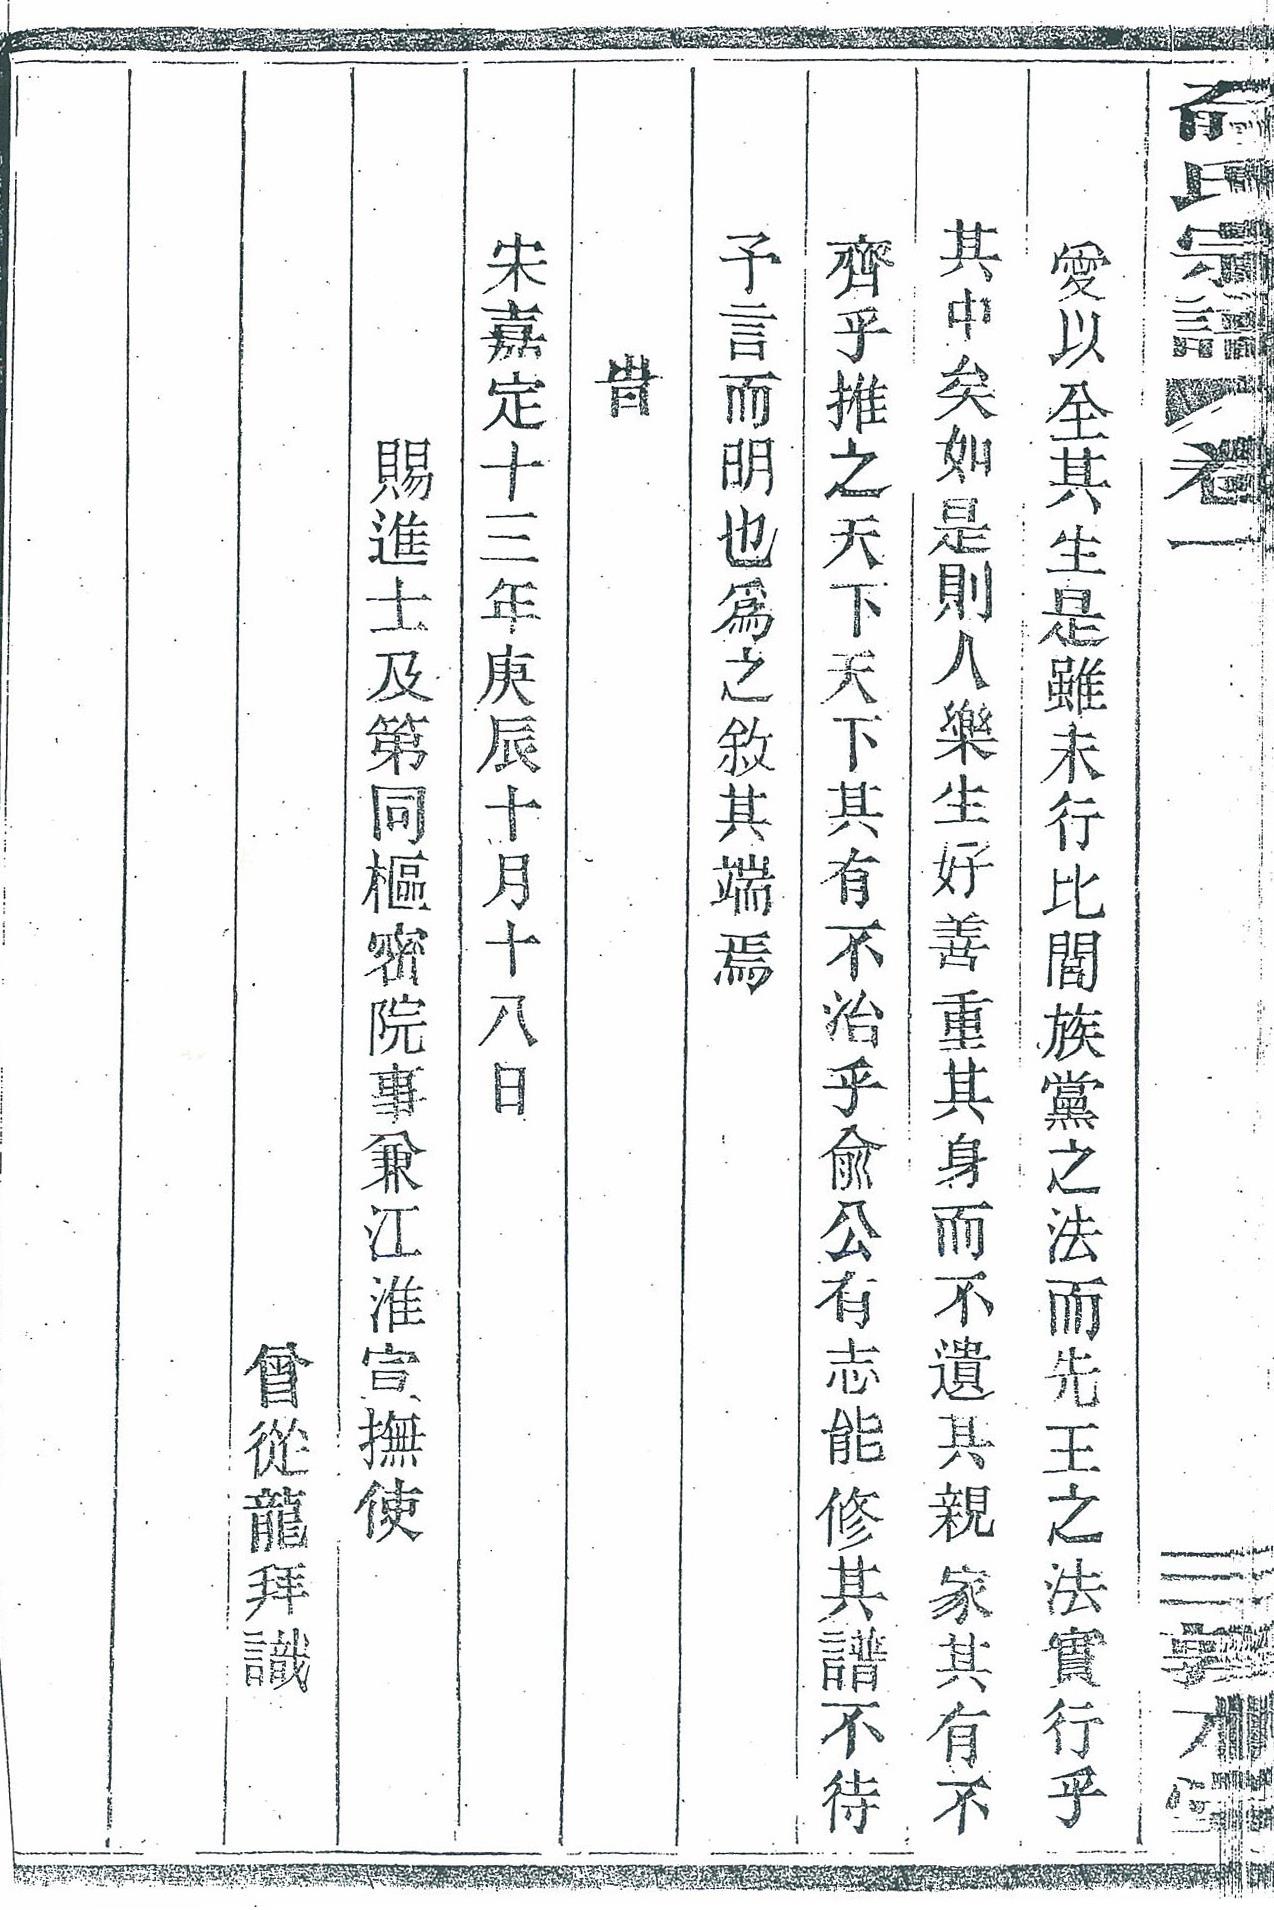 俞氏宗譜 卷一
愛以全其生是雖未行比閭族黨之法而先王之法實行乎
其中矣如是則人樂生好善重其身而不遺其親家其有不
齊乎推之天下天下其有不治乎俞公有志能修其譜不待
予言而明也為之敘其端焉
旹
宋嘉定十三年庚辰十月十八日
賜進士及第同樞密院事兼江淮宣撫使
曾從龍拜識